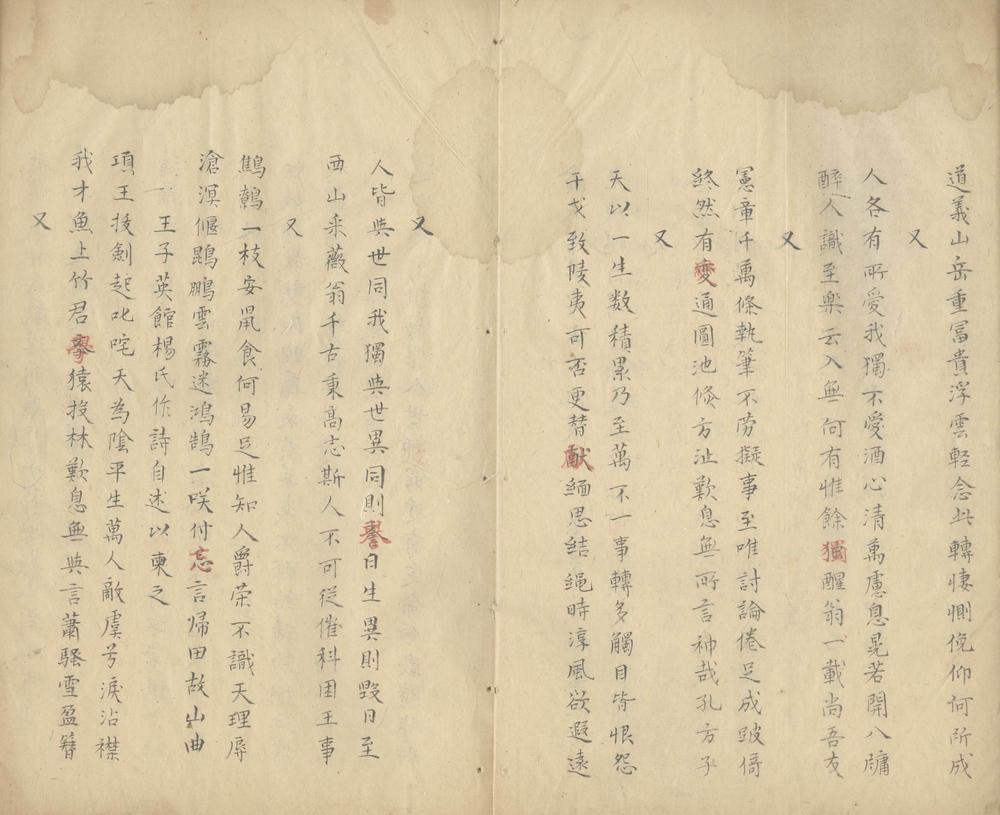 道義山岳重冨貴浮雲軽念此轉悽惻俛仰何所成
又
人各有所愛我獨不愛酒心清萬慮息晃若開八牖
醉人識至樂云入無何有惟餘獨醒翁一載尚吾友
又
憲章千萬條執筆不劳擬事至唯討論倦足成跛倚
終然有變通圖池倐方沚歎息無所言神哉孔方子
又
天以一生数積累乃至萬不一事轉多觸目皆恨怨
干戈致陵夷可否更替献緬思結繩時淳風欲遐遠
又
人皆與世同我獨與世異同則譽日生異則毀日至
西山采薇翁千古秉高志斯人不可從催科困王事
又
鷦鷯一枝安鼠食何易足惟知人爵荣不識天理辱
滄溟偃鵾鵬雲霧迷鴻鵠一咲付忘言帰田故山曲
王子英館楊氏作詩自述以柬之
項王拔劍起叱咤天為陰平生萬人敵虞兮淚沾襟
我才魚上竹君學猿投林歎息無與言蕭騷雪盈簪
又